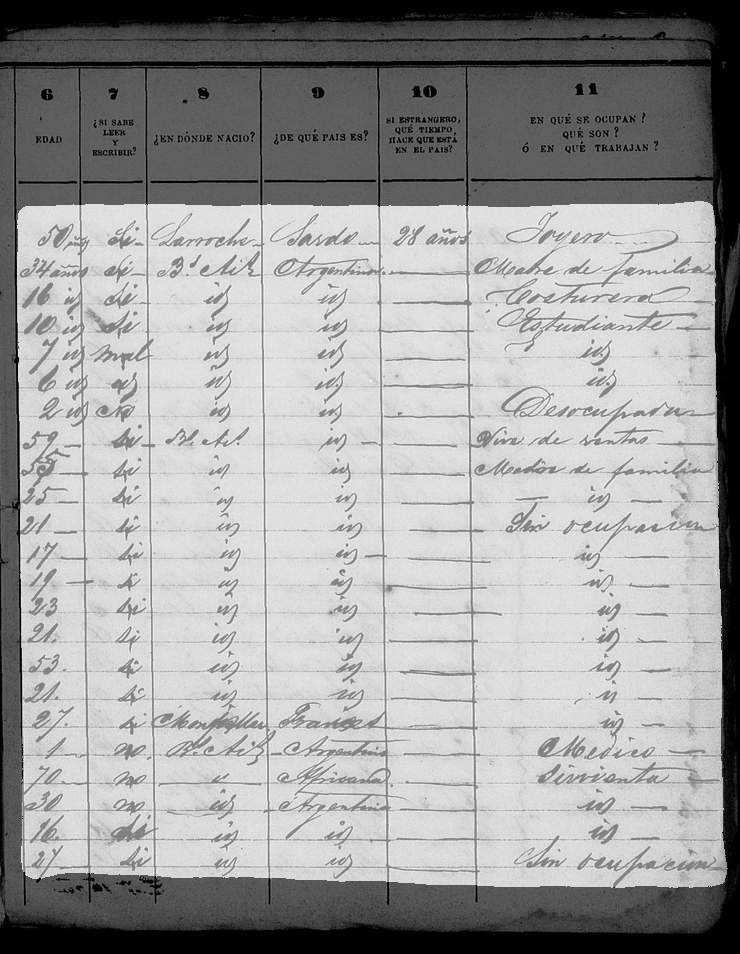 6 7 8 9 10 11
EDAD ¿SI SABE LEER Y ESCRIBIR? ¿EN DÓNDE NACIO? ¿DE QUÉ PAIS ES? SI ESTRANGERO, QUÉ TIEMPO HACE QUE ESTÁ EN EL PAIS? EN QUÉ SE OCUPAN? QUÉ SON? Ó EN QUÉ TRABAJAN?
50 años Si Larroche Sardo 28 años Joyero
34 años Si Bs Ais Argentina Madre de familia
16 id Si id id Costurera
10 id Si id id Estudiante
7 id mal id id id
6 id id id id id
2 id No id id Desocupada
59 si Bs As id Vive de rentas
55 si id id Madre de familia
25 si id id id
21 si id id Sin ocupacion
17 si id id id
19 si id id id
23 si id id id
21. si id id id
53. si id id id
21. si id id id
27. si Frances id
1 no Bs Ais Argentino Medico
70 no Africana Sirvienta
30 no id Argentina id
16. id id id
27 si id id Sin ocupacion